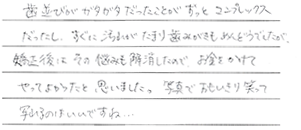 歯並びがガタガタだったことがずっとコンプレックス
だったし、すぐに汚れがたまり歯みがきもめんどうでしたが、
矯正後はその悩みも解消したので、お金をかけて
やってよかったと思いましたっ 写真でおもいきり笑って
写るのはいいですね…